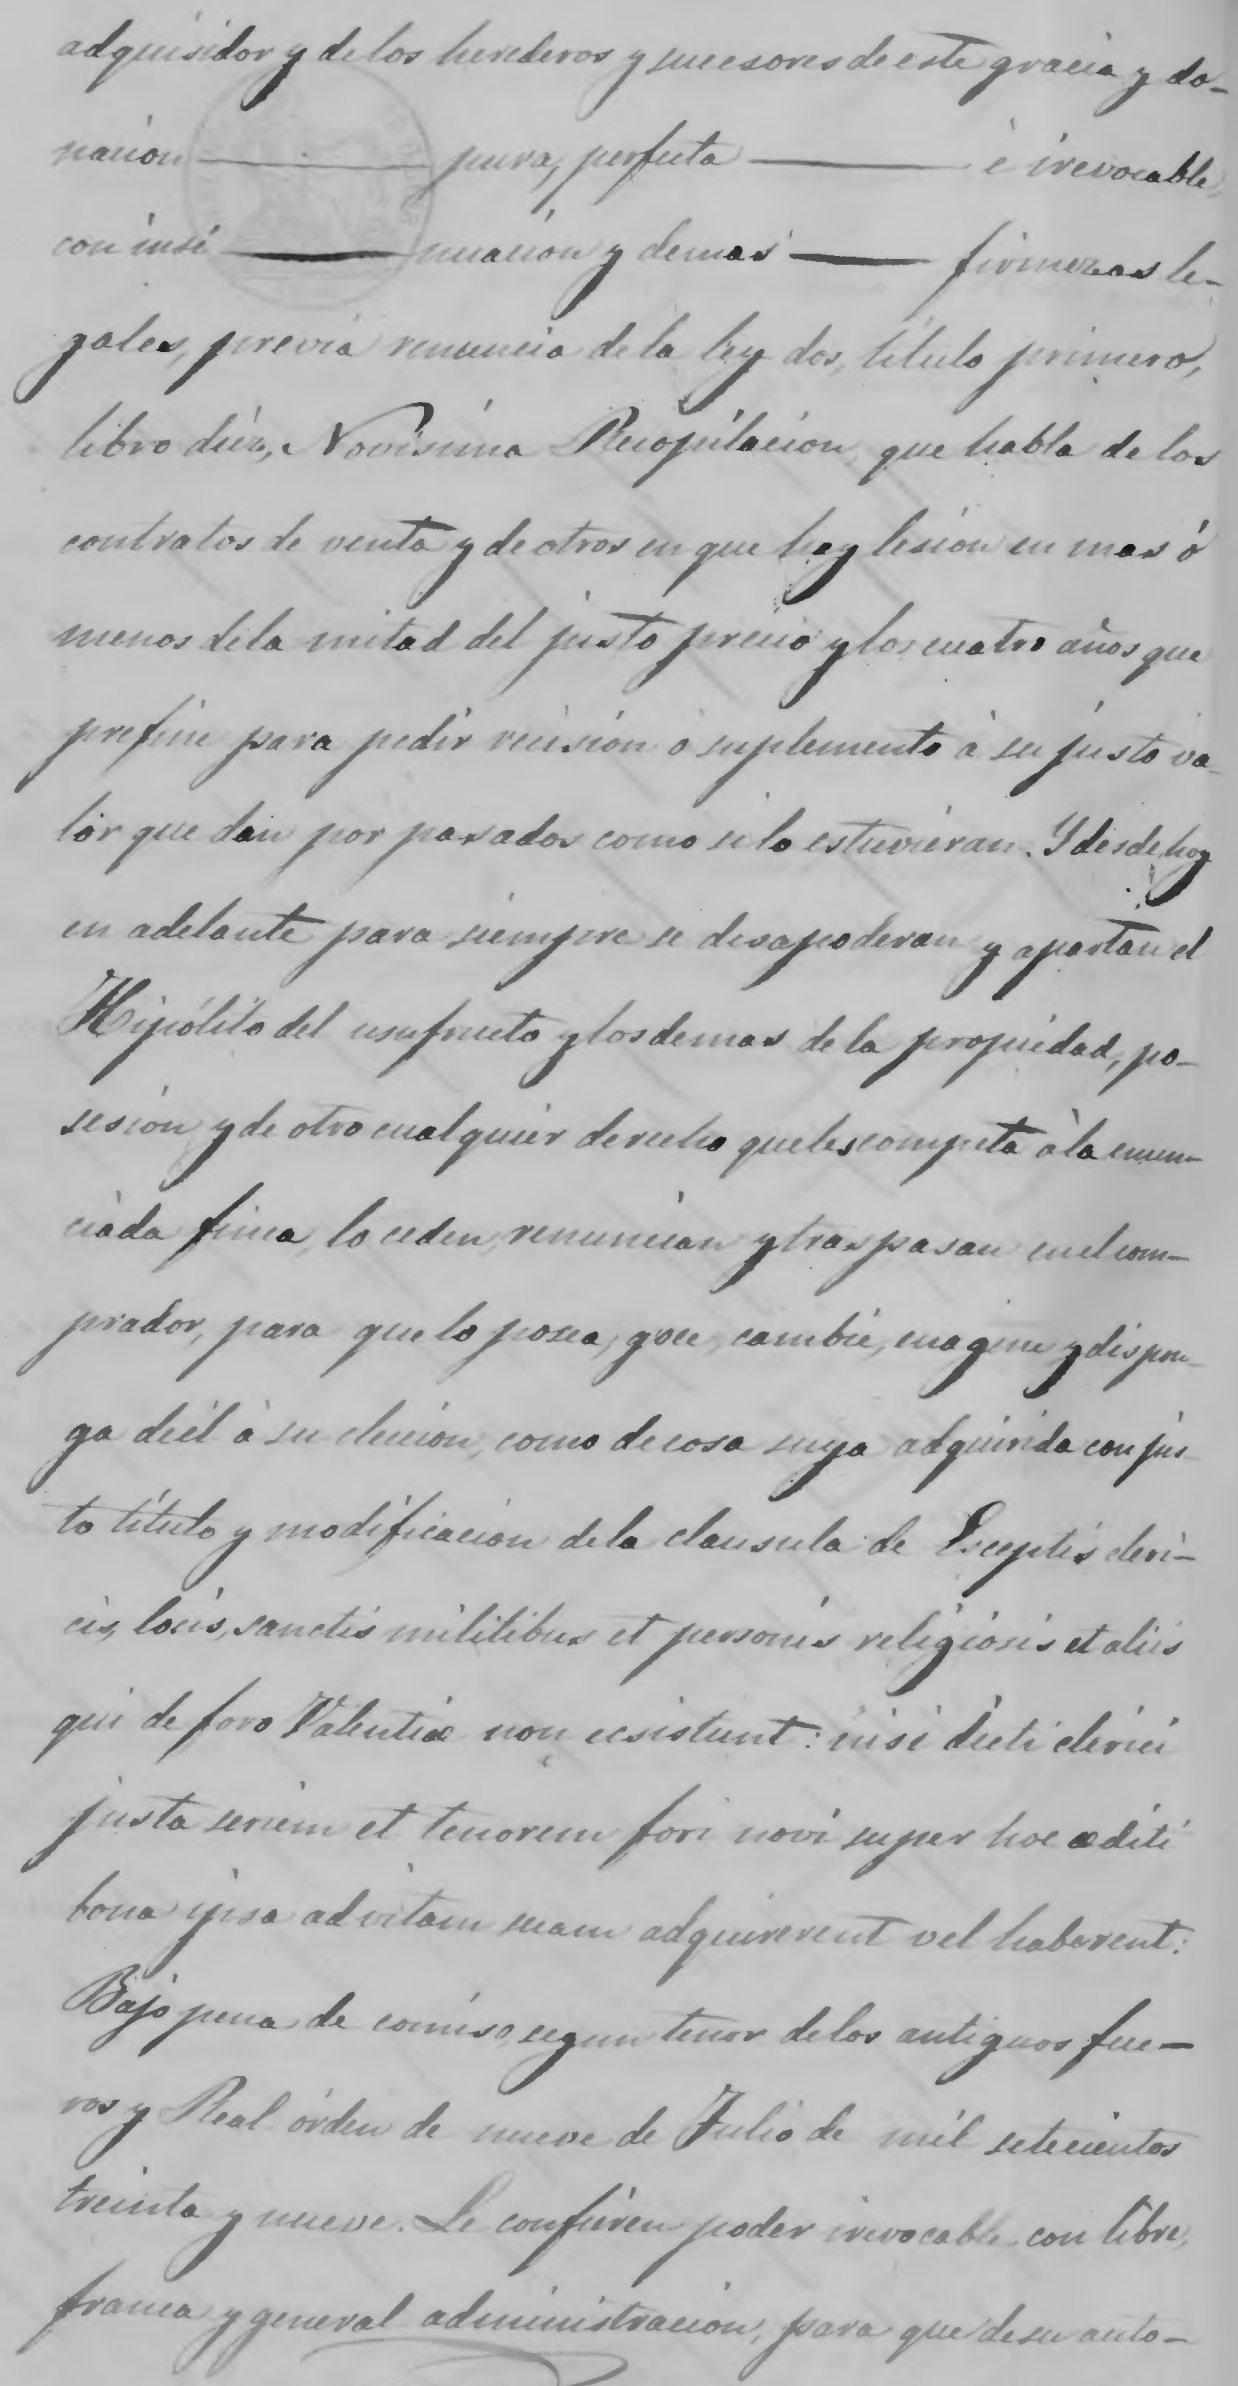 adquisidor y de los herederos y sucesores de este gracia y do-
nacion ——— pura, perfecta ——— é irevocable,
con insi ——— nuacion y demas ——— firmezas le-
gales, previa renuncia de la ley dos, titulo primero,
libro diez, Novisima Recopilacion, que habla de los
contratos de venta y de otros en que hay lesion en mas ó
menos de la mitad del justo precio y los cuatro años que
prefine para pedir recision ó suplemento á su justo va-
lor que dan por pasados como si lo estuvieran. Y desde hoy
en adelante para siempre se desapoderan y apartan el
Hipólito del usufructo y los demas de la propiedad, po-
sesion y de otro cualquier derecho que les competa á la enun-
ciada finca, lo ceden, renuncian y traspasan en el com-
prador, para que lo posea, goce, cambie, enagene y dispon-
ga de él á su eleccion, como de cosa suya adquirida con jus-
to título y modificacion de la clausula de Esceptis cleri-
cis, locis, sanctis militibus et personis religiosis et aliis
qui de foro Valentiæ non ecsistunt: nisi dicti clerici
justa seriem et tenorem fori novi super hoc æditi
bona ipsa ad vitam suam adquirerent vel haberent:
Bajo pena de comiso, segun tenor de los antiguos fue-
ros y Real órden de nueve de Julio de mil setecientos
treinta y nueve. Le confieren poder irevocable con libre,
franca y general administracion, para que de su auto-